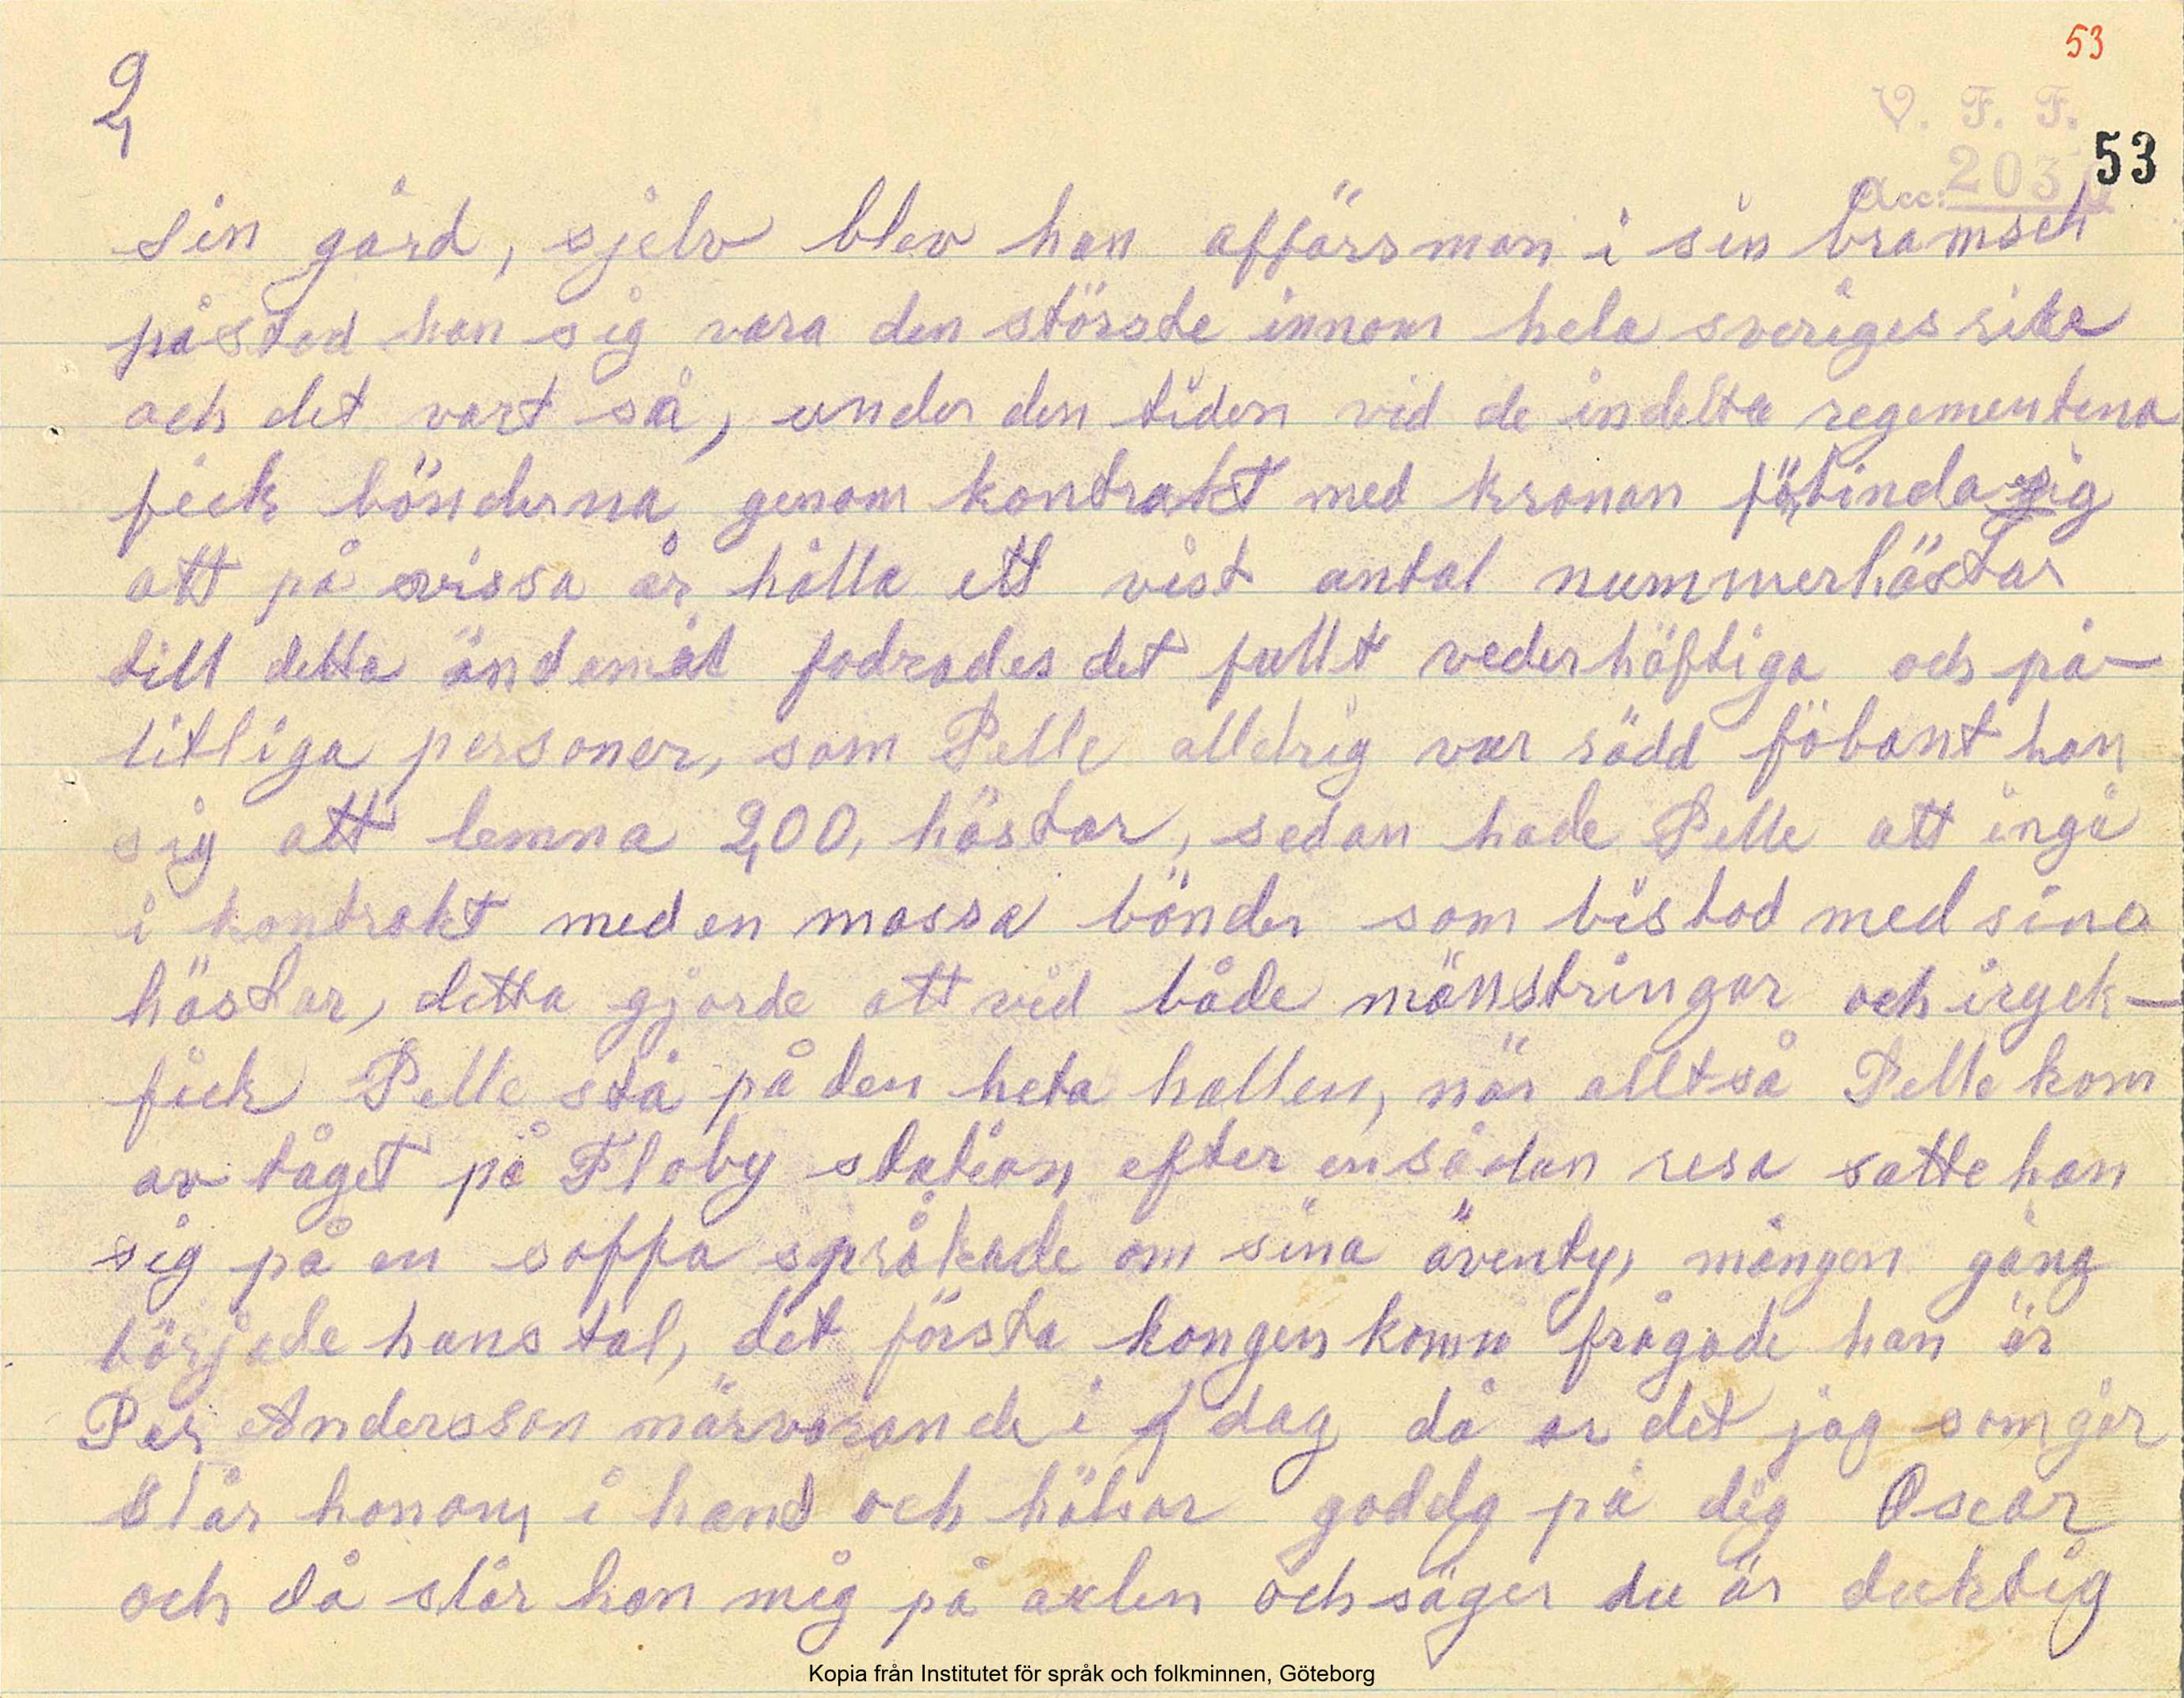 53
2
V. F. F.
53
Acc: 203
sin gård, sjelv blev han affärsman i sin bramsch
påstod han sig vara den störste innom hela sveriges rike
och det vart så, under den tiden vid de indelta regementena
fick bönderna genom kontrakt med kronan föbinda sig
att på vissa år hålla ett vist antal nummerhästar
till detta ändemål fodrades det fullt vederhäftiga och på-
litliga personer, som Pelle alldrig var rädd föbant han
sig att lemna 200, hästar, sedan hade Pelle att ingå
i kontrakt med en massa bönder som bistod med sina
hästar, detta gjorde att vid både mönstringar och iryck-
fick Pelle stå på den heta hallen, när alltså Pelle kom
av tåget på Floby station efter en sådan resa satte han
sig på en soffa språkade om sina äventy, mången gång
började hans tal, det första kongen komm frågade han är
Per Andersson närvarande i dag då är det jag som går
slår honom i hand och hälsar goddg på dig Oscar
och då slår han mig på axlen och säger du är duktig
Kopia från Institutet för språk och folkminnen, Göteborg